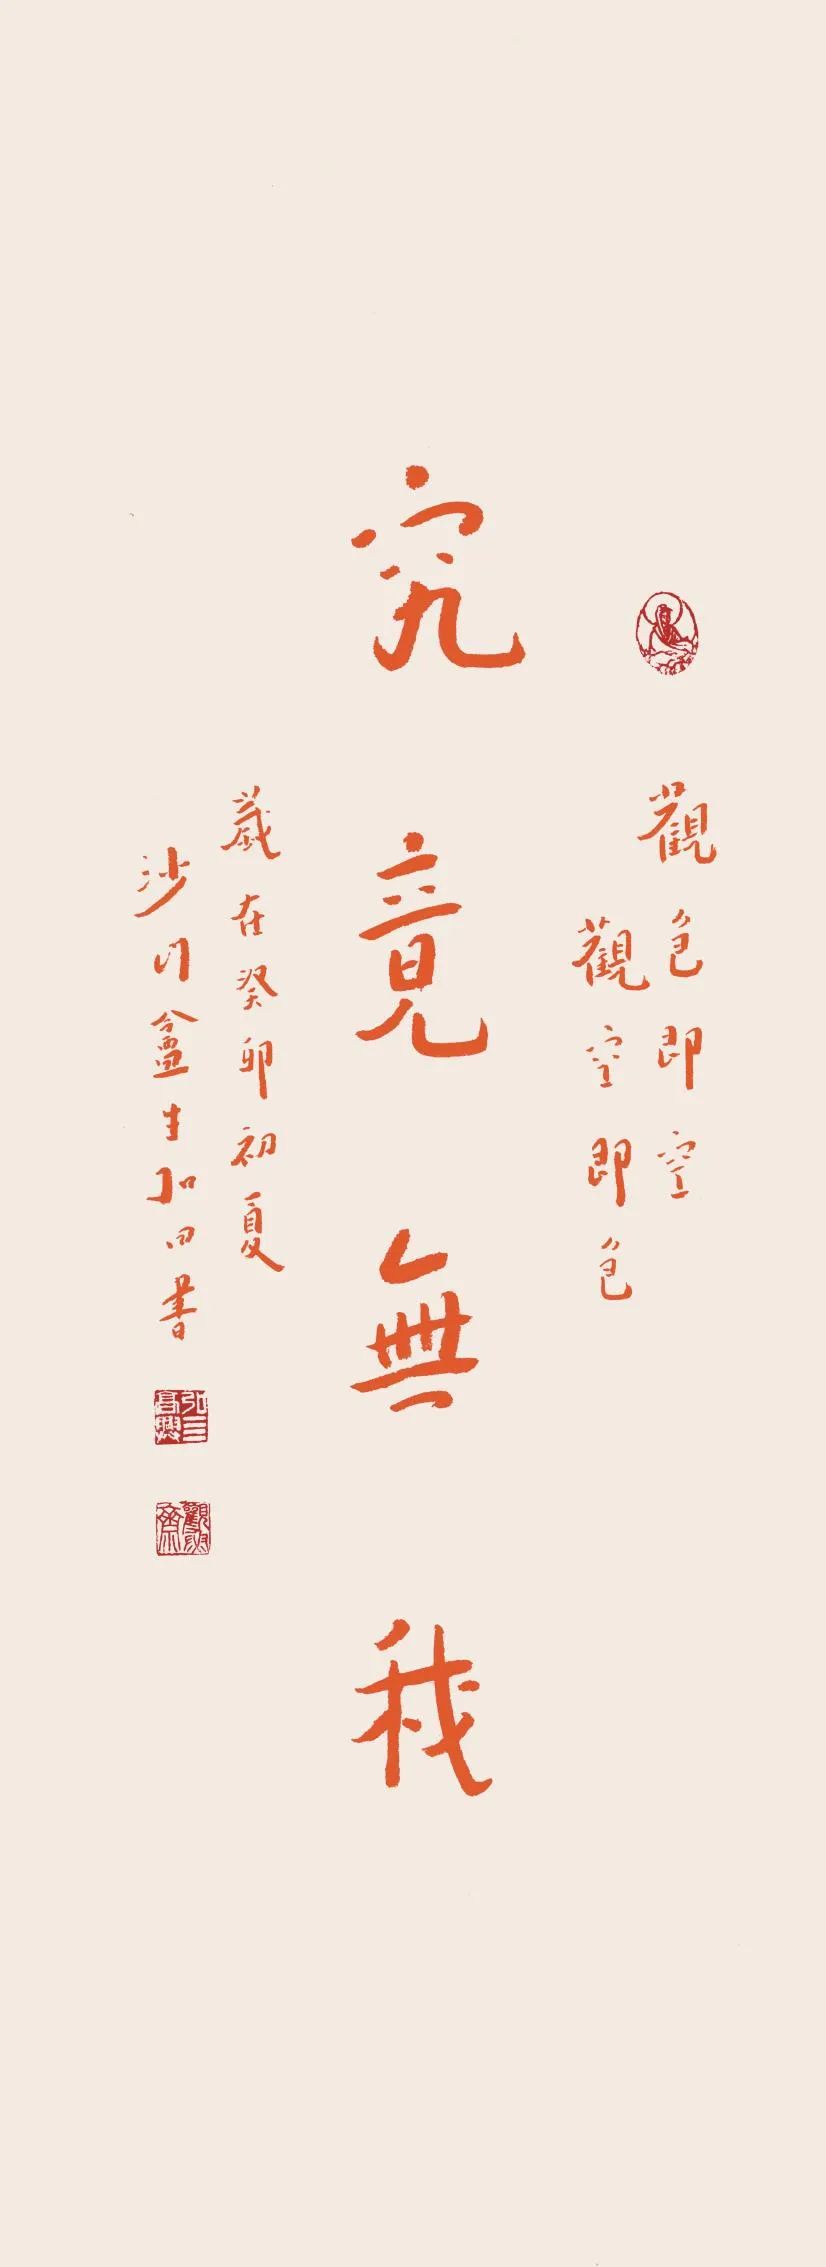 觀色即空
觀空即色
究竟無我
歲在癸卯初夏
沙門盦生加田書